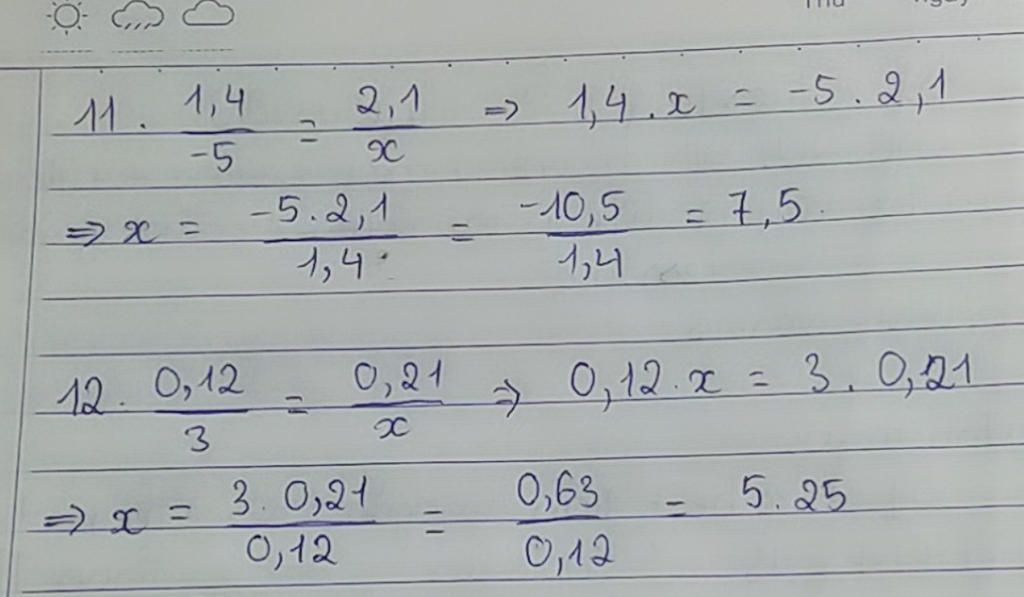 11. 1,4/-5 = 2,1/x ⇒ 1,4.x = -5.2,1
⇒ x = -5.2,1/1,4 = -10,5/1,4 = 7,5
12. 0,12/3 = 0,21/x ⇒ 0,12.x = 3.0,21
⇒ x = 3.0,21/0,12 = 0,63/0,12 = 5.25